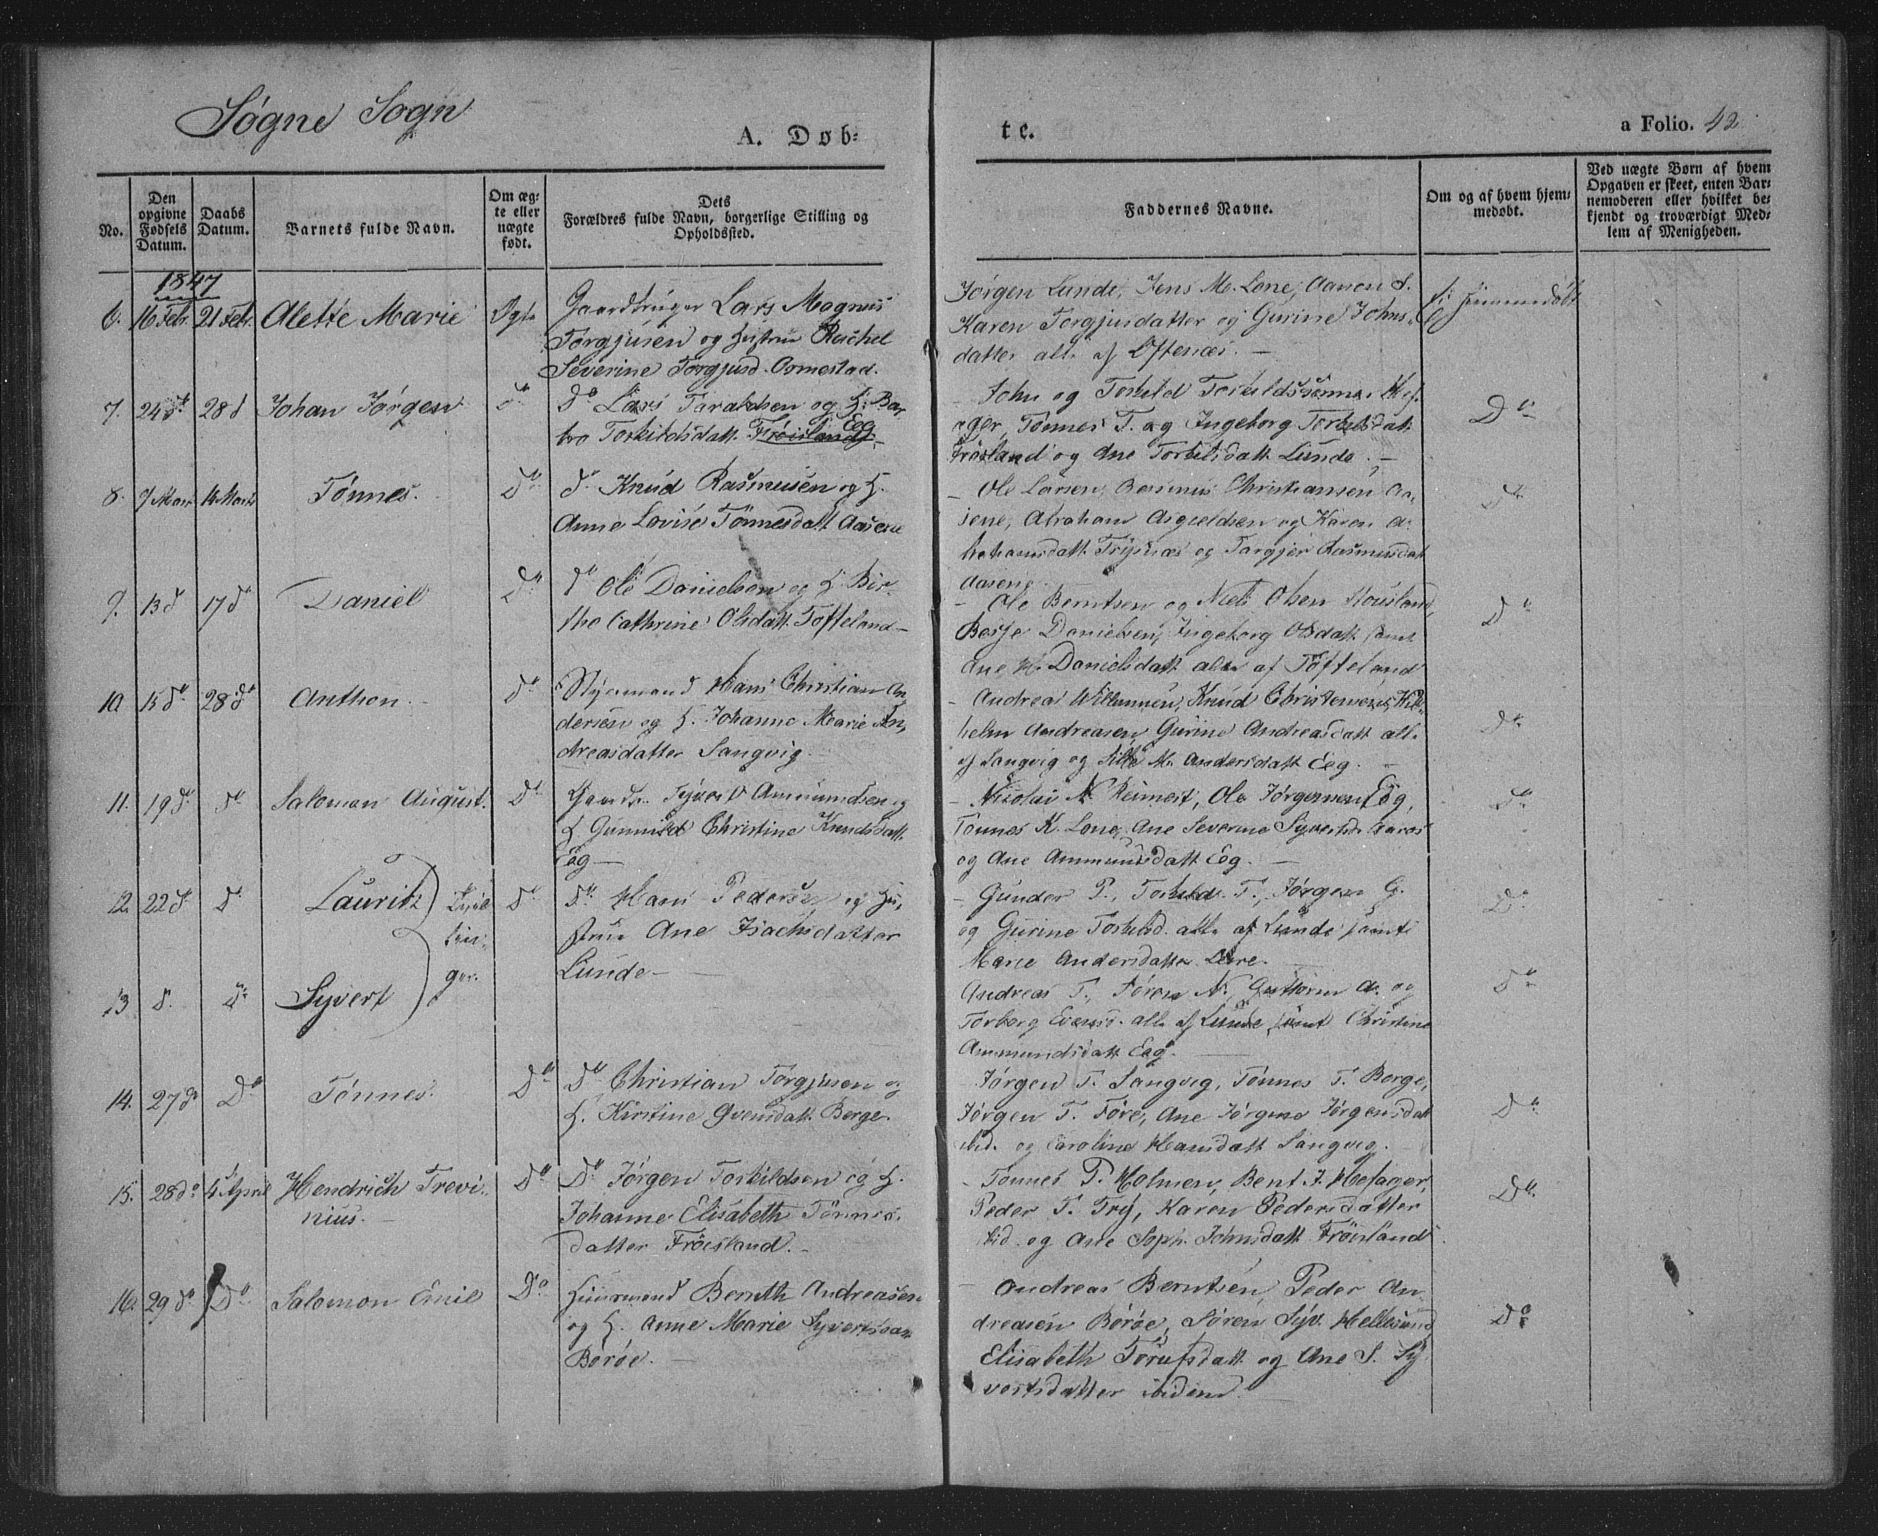 Søgne Sogn
A. Døb-
te.
a Folio. 42
No.
Den opgivne Fødsels Datum.
Daabs Datum.
Barnets fulde Navn.
Om ægte eller uægte født.
Dets Forældres fulde Navn, borgerlige Stilling og Opholdssted.
Faddernes Navne.
Om og af hvem hjemmedøbt.
Ved uægte Børn af hvem Opgaven er skeet, enten Barnemoderen eller hvilket bekjendt og troværdigt Medlem af Menigheden.
1847
6. 16 Febr. 21 Febr. Alette Marie Ægte Gaardbruger Lars Magnus
Torgjusen og Hustrue Rachel
Severine Torgjusd. Omestad.
Jørgen Lunde, Jens M. Lone, Aanon S.
Karen Torgjusdatter og Gurine Johns-
datter alle af Oftenæs. —
Ei hjemmedøbt
7. 24 do 28 d Johan Jørgen do do Lars Taraldsen og H. Bar-
bro Torkildsdatt. Frøisland Eeg
— John og Torkild Torkildssønner
Tønnes T. og Ingeborg Torkilsdatt.
Frøisland og Ane Torkilsdatt. Lunde. —
Do
8. 7 Marts 14 Marts Tønnes. Do do Knud Rasmusen og H.
Anne Lovise Tønnesdatt. Aasene
— Ole Larsen, Rasmus Christiansen Aa-
sene, Abraham Asgieldsen og Karen A-
brahamsdatt. Trysnæs og Torgjer Rasmusdatt.
Aasene.
Do
9. 13 d 17 do Daniel Do do Ole Danielsen og H. Bir-
the Cathrine Olsdatt. Tofteland —
— Ole Berntsen og Niels Olsen Housland,
Berje Danielsen, Ingeborg Olsdatt. samt
Ane M. Danielsdatt. alle af Tofteland
Do
10 15 do 28 do Anthon. Do Styrmand Hans Christian An-
dersen og H. Johanne Marie An-
dreasdatter Langvig.
— Andreas Willumsen, Knud Christensen, Wil-
helm Andreasen, Gurine Andreasdatt. alle
af Langvig og Sille M. Andersdatt. Eeg. —
Do
11. 19 d. do Salomon August. Do Gaardb. Syvert Ammundsen og
H. Gunnild Christine Knudsdatt.
Eeg —
— Nicolai N. Reimert, Ole Jørgensen Eeg,
Tønnes K. Lone, Ane Severine Syvertsd. Aaros
og Ane Ammundsdatt. Eeg. —
Do
12. 22 d. Do Lauritz Do Do Hans Pedersen og Hu-
strue Ane Isachsdatter
Lunde —
Tvil-
lin-
ger.
— Gunder P., Torkild T., Jørgen G.
og Gurine Torkilsd. alle af Lunde samt
Marie Andersdatter Leire. —
Do
13 d. Do Syvert
Andreas T., Søren N., Guttorm A. og
Torborg Evensd. alle af Lunde samt Christine
Ammundsdatt. Eeg. —
Do
14. 27 do Do Tønnes. Do Do Christian Torgjusen og
H. Kirstine Svensdatt. Berge.
Jørgen T. Langvig, Tønnes T. Berge,
Jørgen T. Føre, Ane Jørgine Jørgensdatt.
ibid. og Caroline Hansdatt. Langvig.
Do
15. 28 do 4 April Hendrich Trevi-
nius. —
Do Do Jørgen Torkildsen og H.
Johanne Elisabeth Tønnes-
datter Frøisland. —
— Tønnes P. Holmen, Bent J. Høfager,
Peder T. Try, Karen Pedersdatter
ibid. og Ane Soph. Johnsdatt. Frøisland.
Do
16. 29 do Do Salomon Emil Do Huusmand Bernth Andreasen
og H. Anne Marie Syvertsdat.
Borøe. —
— Andreas Berntsen, Peder An-
dreasen Borøe, Søren Syv. Hellesund
Elisabeth Torufsdatt. og Ane S. Sy-
vertsdatter ibidem.
Do